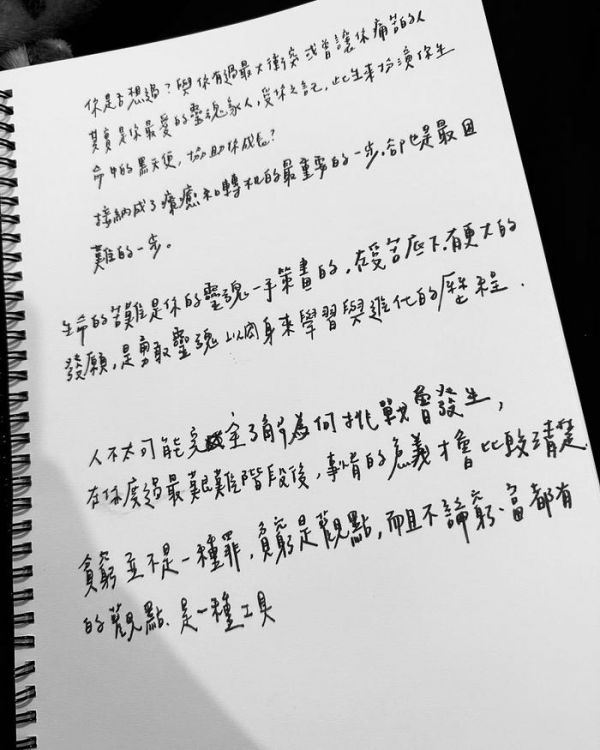 你是否想過？與你有過最大衝突或曾讓你痛苦的人
其實是你最愛的靈魂家人，受你之託，此生來扮演你生
命中的黑天使，協助你成長？
接納成了療癒和轉機的最重要的一步，卻也是最困
難的一步。
生命的苦難是你的靈魂一手策畫的，在受苦底下，有更大的
發願，是勇敢靈魂以肉身來學習與進化的歷程．
人不太可能完全了解為何挑戰會發生，
在你度過最艱難階段後，事情的意義才會比較清楚．
貧窮並不是一種罪，貧窮是觀點，而且不論窮、富都有
的觀點、是一種工具